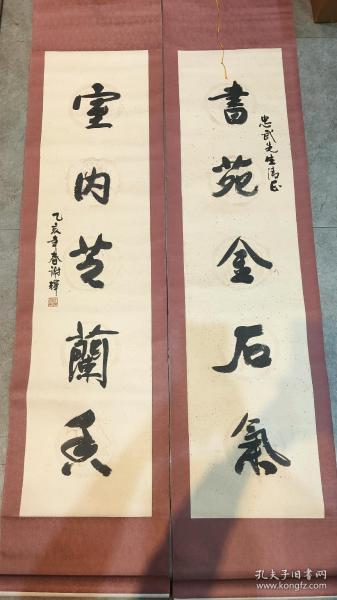 書苑金石氣
忠武先生清正
室内芝蘭香
乙亥年春谢樺
孔夫子旧书网
www.kongfz.com